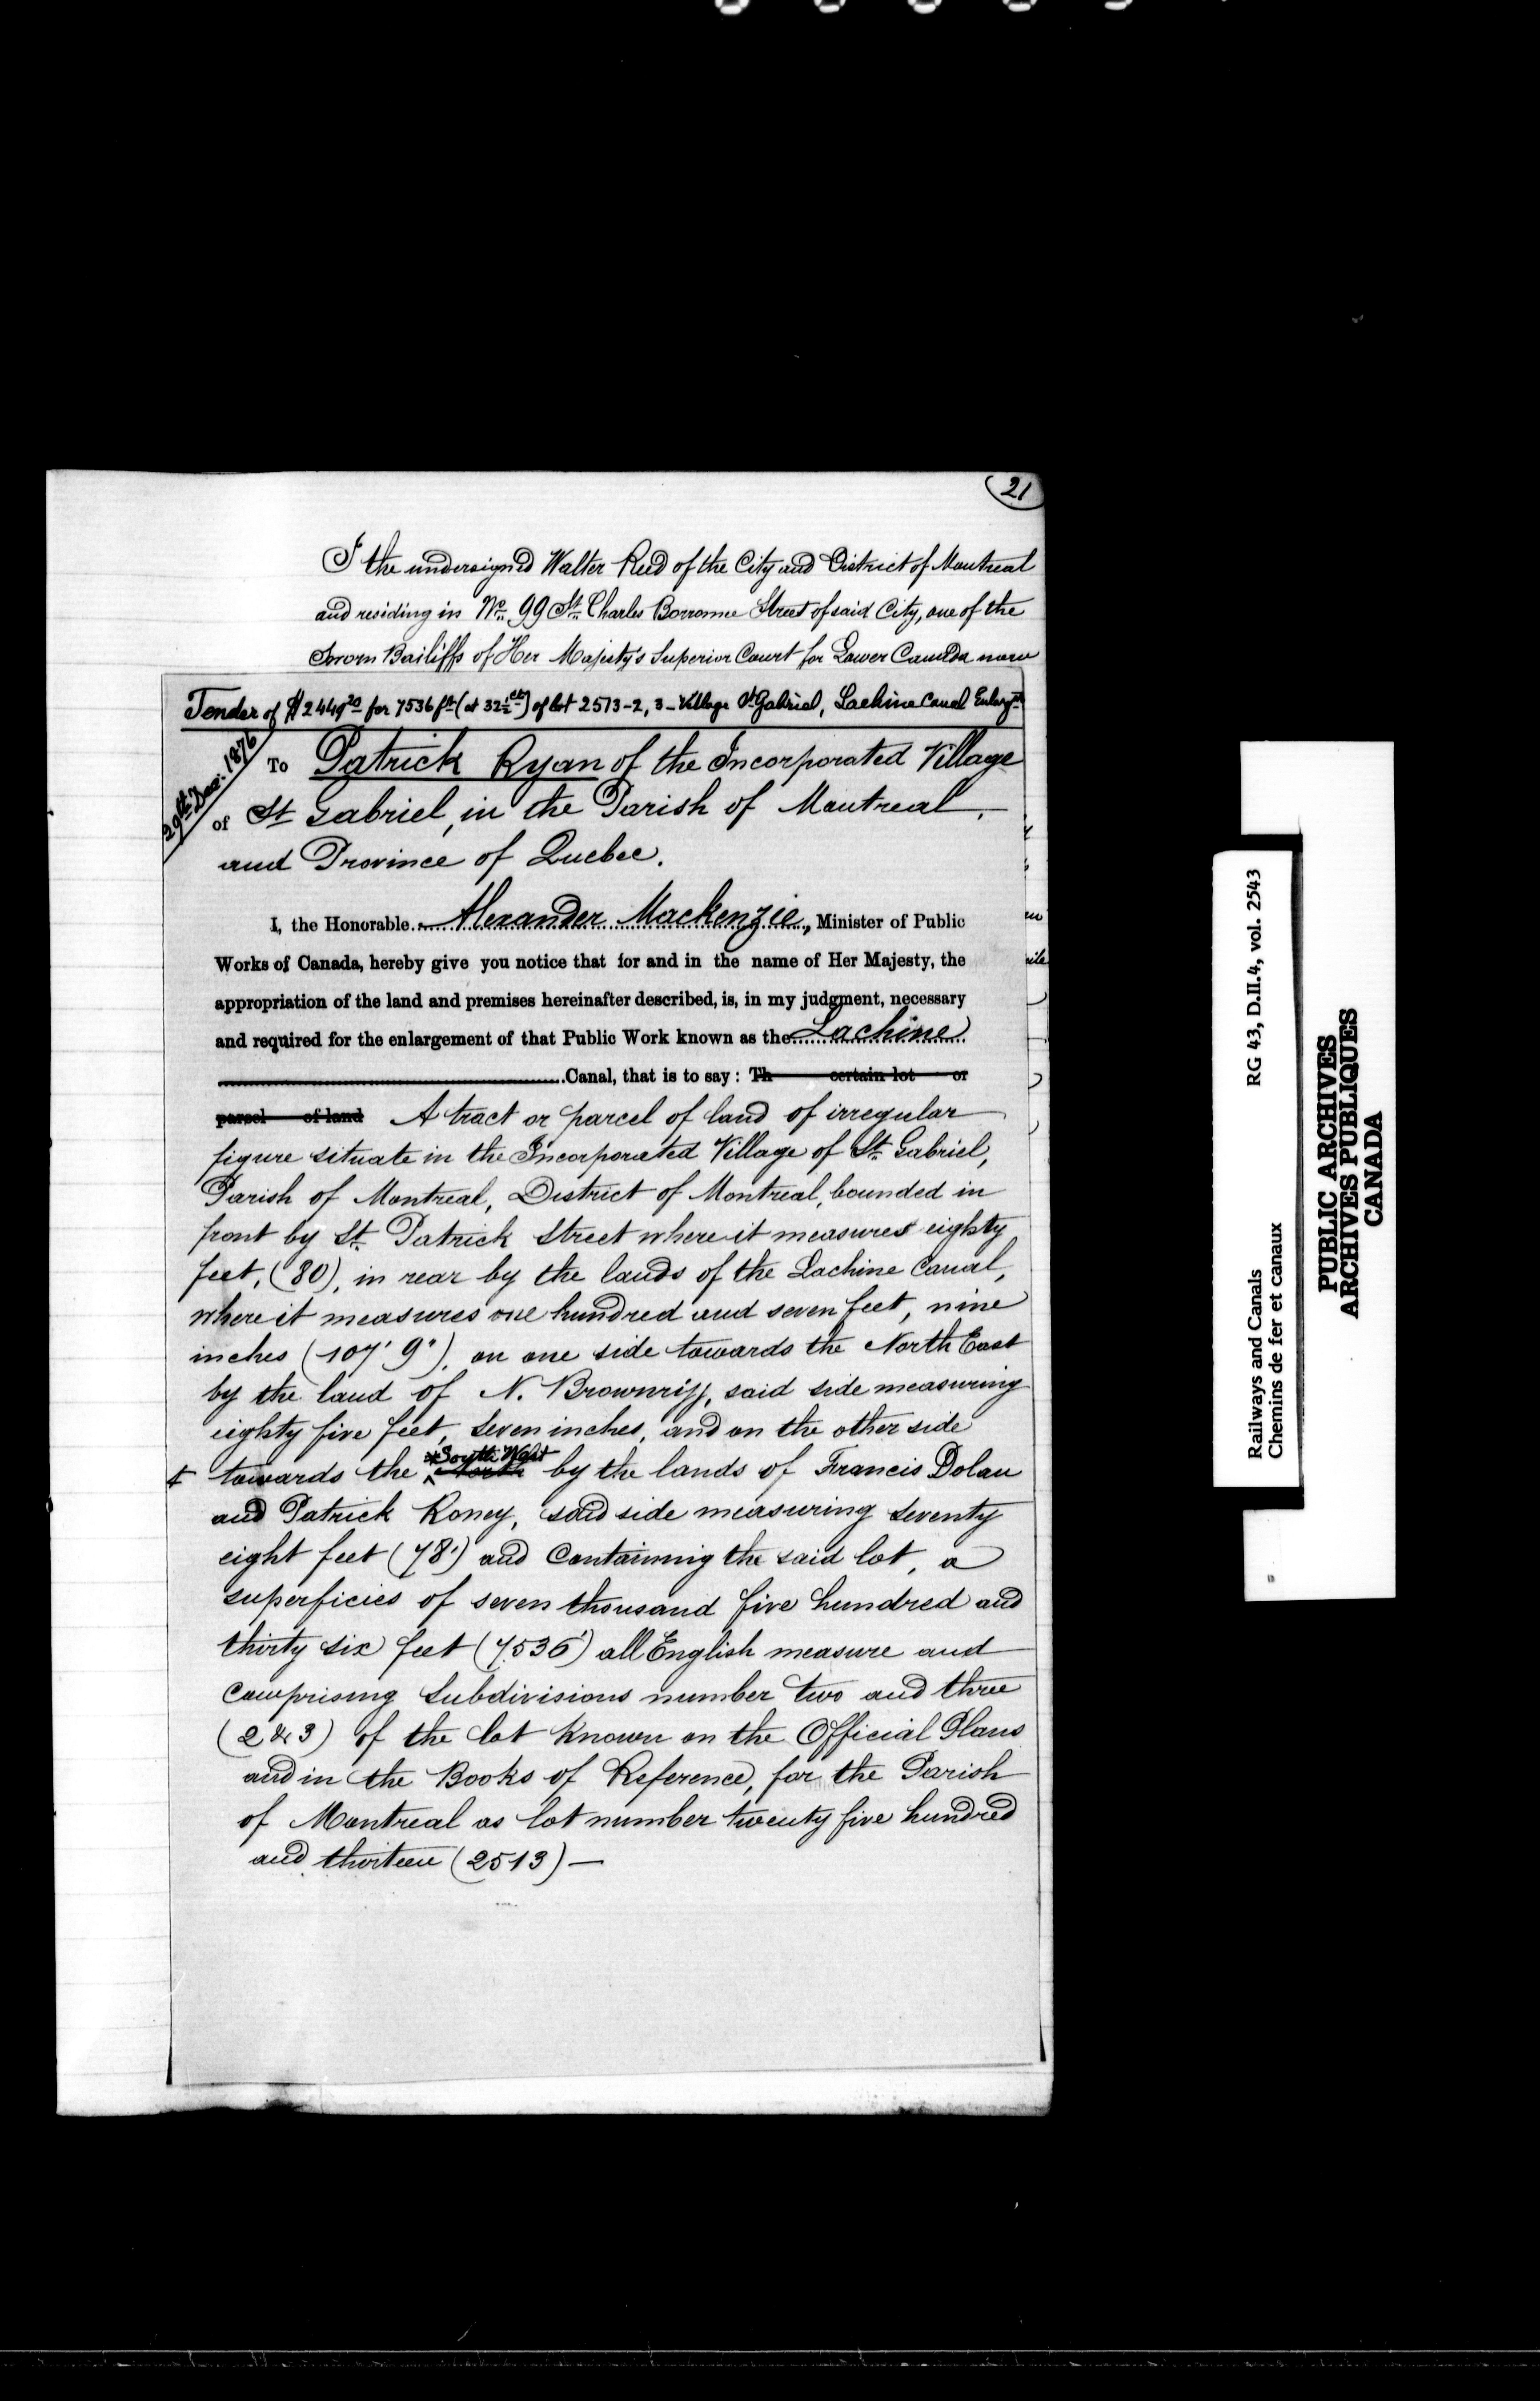 21
I the undersigned Walter Reed of the City and District of Montreal
and residing in No. 99 St. Charles Borromee Street of said City, one of the
Sworn Bailiffs of Her Majesty's Superior Court for Lower Canada now
Tender of $2449 20 for 7536 ft (at 32½ cts) of lot 2513-2, 3 - Village St Gabriel, Lachine Canal Enlargt
29th Dec: 1876
To Patrick Ryan of the Incorporated Village
of St Gabriel, in the Parish of Montreal,
and Province of Quebec.
I, the Honorable Alexander Mackenzie, Minister of Public
Works of Canada, hereby give you notice that for and in the name of Her Majesty, the
appropriation of the land and premises hereinafter described, is, in my judgment, necessary
and required for the enlargement of that Public Work known as the Lachine
Canal, that is to say: Th certain lot or
parcel of land A tract or parcel of land of irregular
figure situate in the Incorporated Village of St. Gabriel,
Parish of Montreal, District of Montreal, bounded in
front by St. Patrick Street where it measures eighty
feet, (80), in rear by the lands of the Lachine Canal,
where it measures one hundred and seven feet, nine
inches (107' 9"), on one side towards the North East
by the land of N. Brownrigg, said side measuring
eighty five feet, seven inches, and on the other side
South West
towards the by the lands of Francis Dolan
and Patrick Roney, said side measuring seventy
eight feet (78') and Containing the said lot, a
superficies of seven thousand five hundred and
thirty six feet (7536') all English measure and
comprising Subdivisions number two and three
(2 & 3) of the lot known on the Official Plans
and in the Books of Reference, for the Parish
of Montreal as lot number twenty five hundred
and thirteen (2513) —
Railways and Canals RG 43, D.II.4, vol. 2543
Chemins de fer et canaux
PUBLIC ARCHIVES
ARCHIVES PUBLIQUES
CANADA